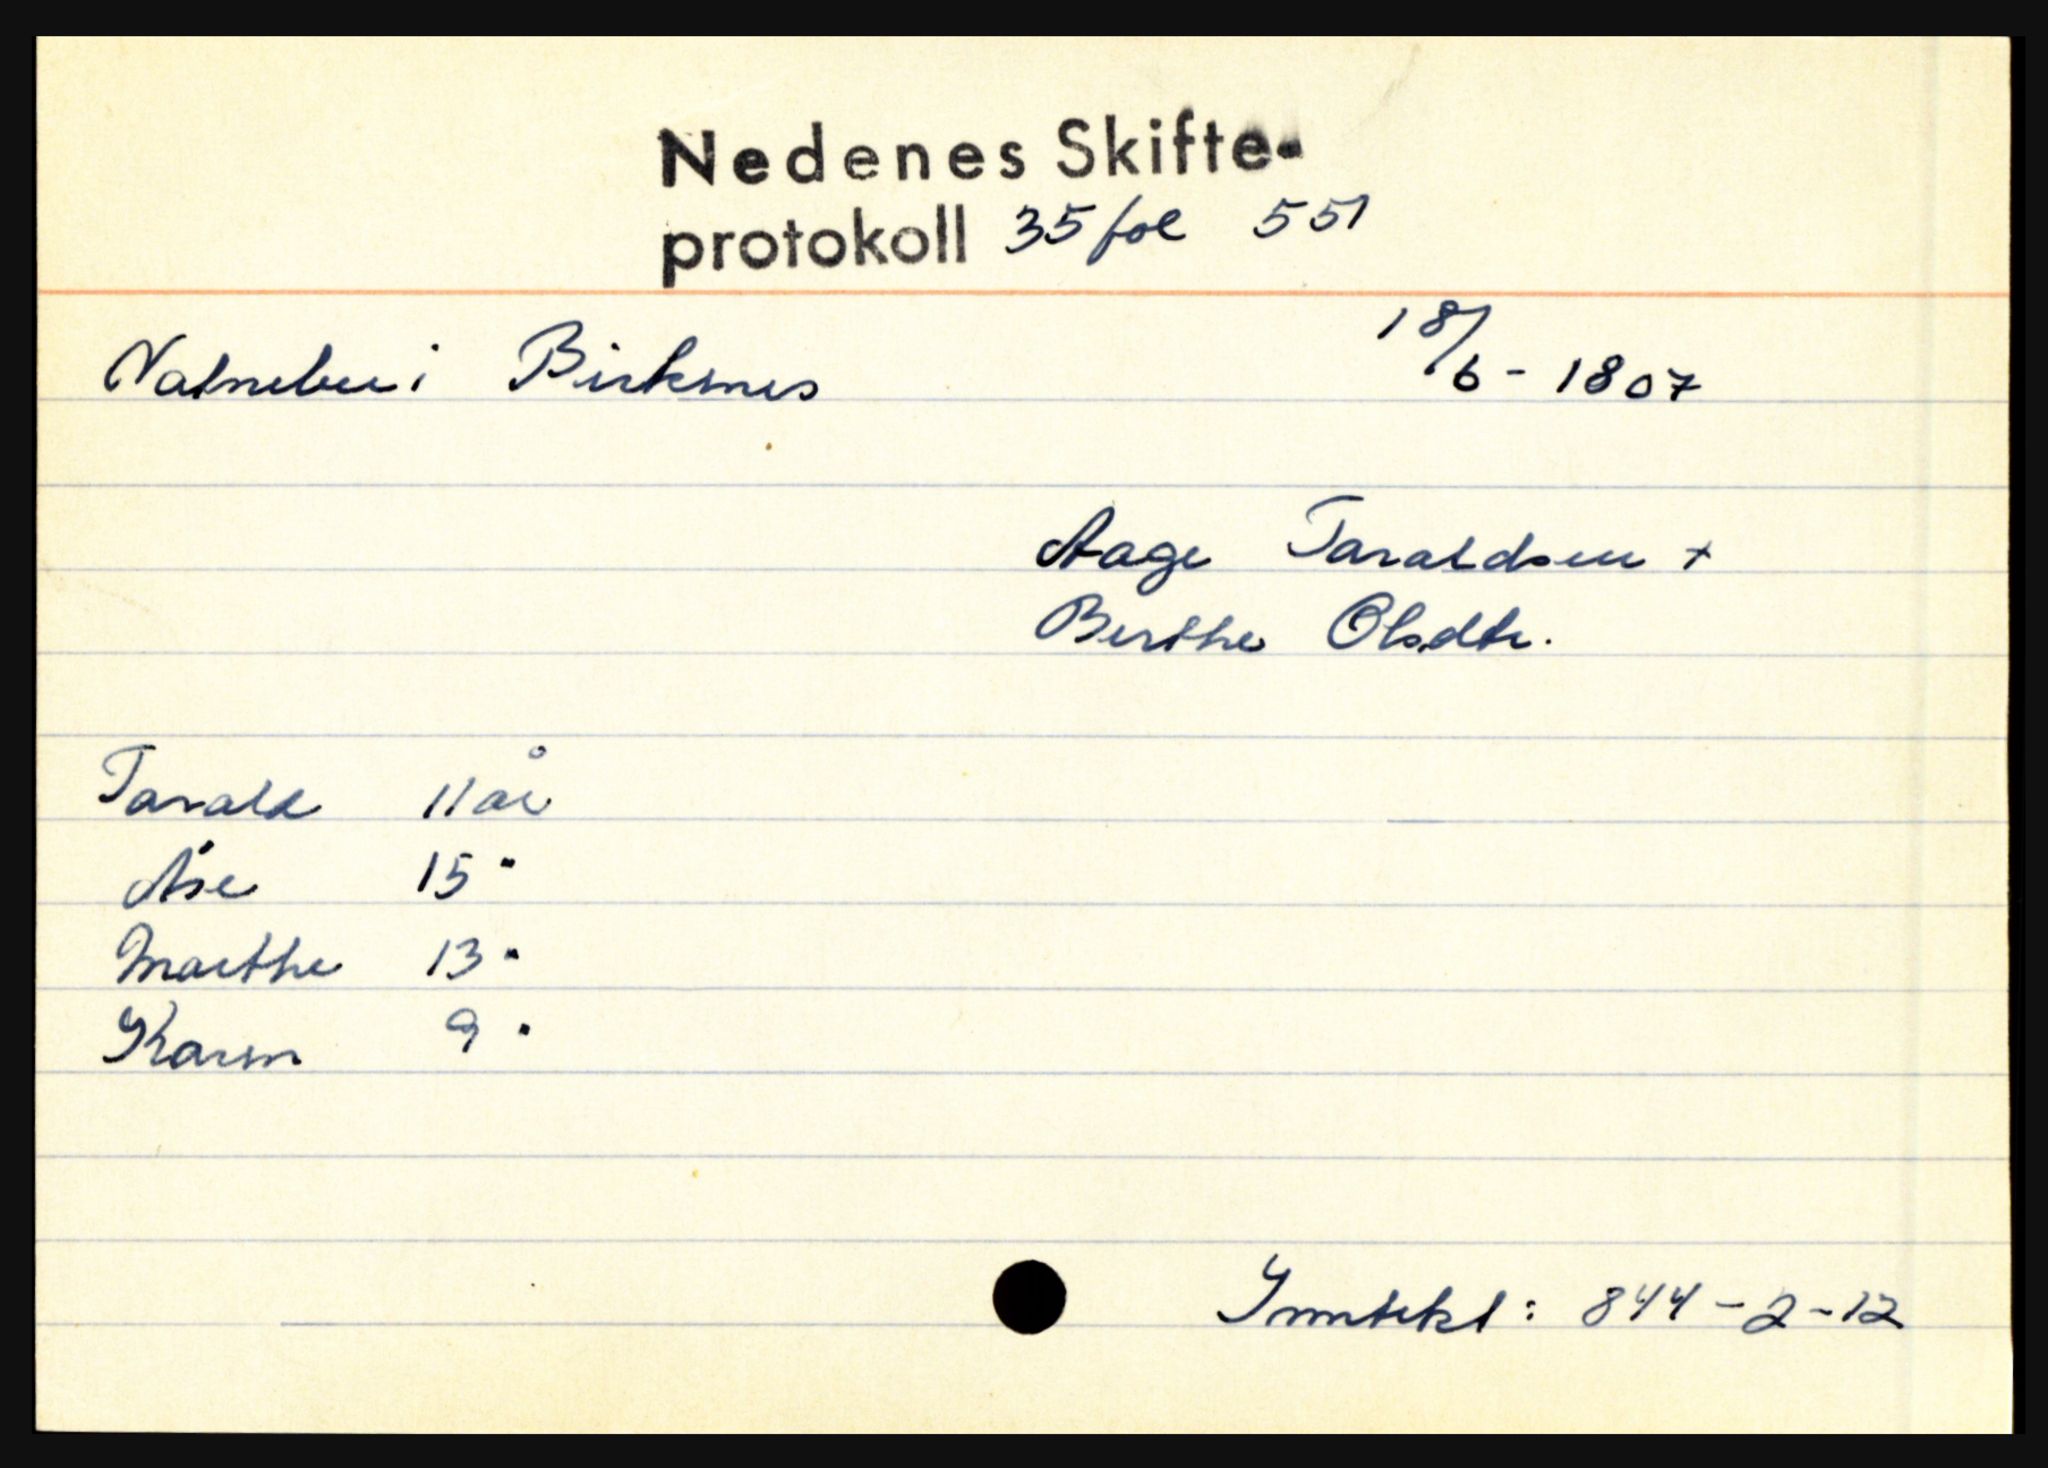 Nedenes Skifte-
protokoll 35 fol 551
Natnebu i Birkenes 18/6 - 1807
Aage Taraldsen +
Berthe Olsdtr.
Tarald 11 år
Åse 15 "
Marthe 13 "
Karen 9 "
Inntekt: 844-2-12